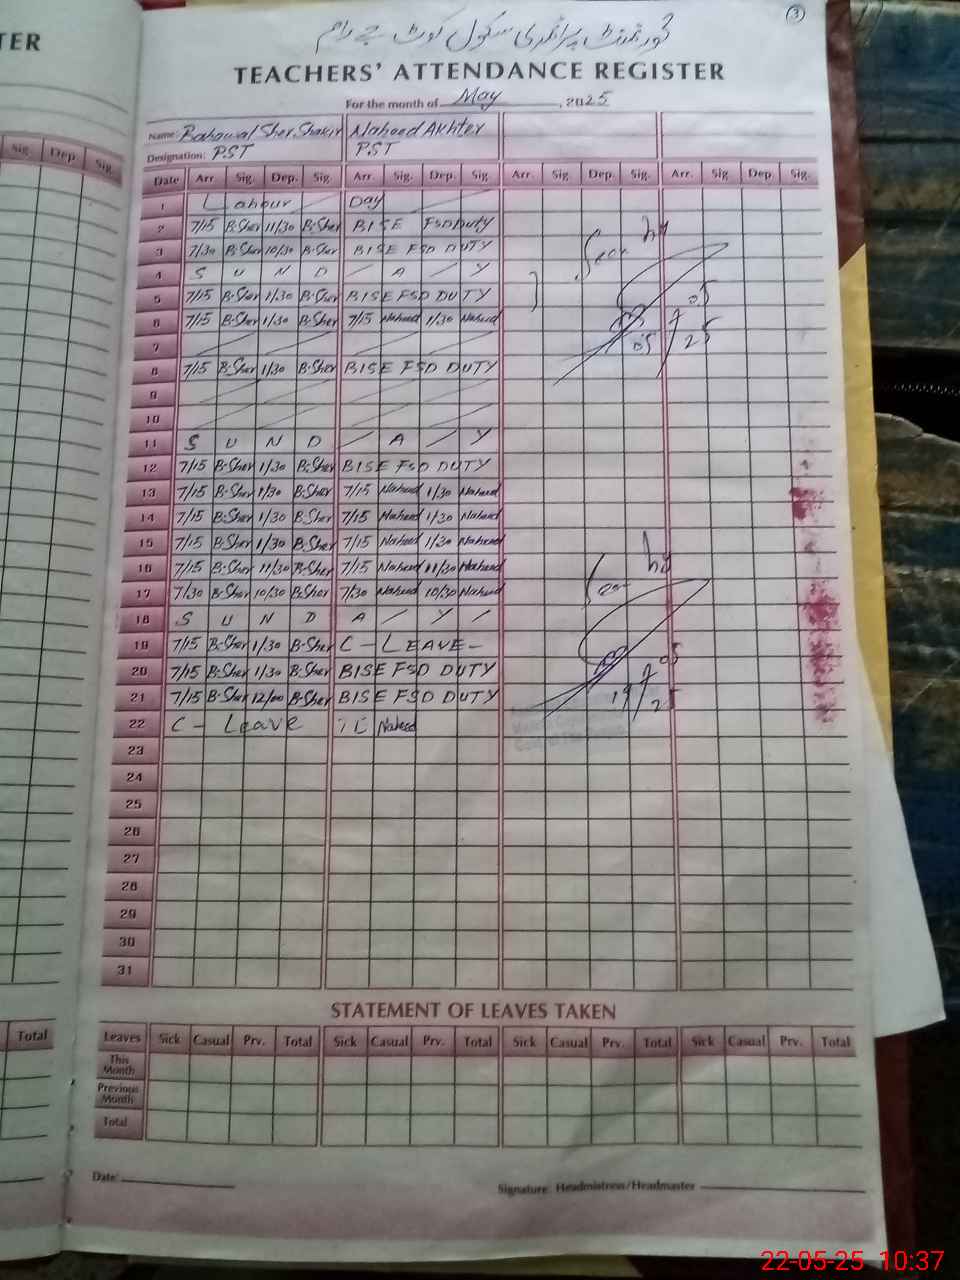 TER
Sig. Dep Sig.
Total
3
گورنمنٹ پرائمری سکول کوٹ جے رام
TEACHERS' ATTENDANCE REGISTER
For the month of May, 2025
Name: Bahawal Sher Shakir Naheed Akhter
Designation: P.ST P.ST
Date Arr. Sig. Dep. Sig. Arr. Sig. Dep. Sig Arr. Sig. Dep. Sig. Arr. Sig. Dep. Sig.
1 Labour Day
2 7/15 B.Sher 11/30 B.Sher BISE FSD DUTY
3 7/30 B.Sher 10/30 B.Sher BISE FSD DUTY
4 S U N D / A / Y
5 7/15 B.Sher 1/30 B.Sher BISE FSD DUTY
6 7/15 B.Sher 1/30 B.Sher 7/15 Naheed 1/30 Naheed
7
8 7/15 B.Sher 1/30 B.Sher BISE FSD DUTY
9
10
11 S U N D / A / Y
12 7/15 B.Sher 1/30 B.Sher BISE FSD DUTY
13 7/15 B.Sher 1/30 B.Sher 7/15 Naheed 1/30 Naheed
14 7/15 B.Sher 1/30 B.Sher 7/15 Naheed 1/30 Naheed
15 7/15 B.Sher 1/30 B.Sher 7/15 Naheed 1/30 Naheed
16 7/15 B.Sher 11/30 B.Sher 7/15 Naheed 11/30 Naheed
17 7/30 B.Sher 10/30 B.Sher 7/30 Naheed 10/30 Naheed
18 S U N D A / Y /
19 7/15 B.Sher 1/30 B.Sher C - LEAVE -
20 7/15 B.Sher 1/30 B.Sher BISE FSD DUTY
21 7/15 B.Sher 12/00 B.Sher BISE FSD DUTY
22 C - Leave Naheed
23
24
25
26
27
28
29
30
31
STATEMENT OF LEAVES TAKEN
Leaves Sick Casual Prv. Total Sick Casual Prv. Total Sick Casual Prv. Total Sick Casual Prv. Total
This Month
Previous Month
Total
Date:
Signature: Headmistress/Headmaster
22-05-25 10:37